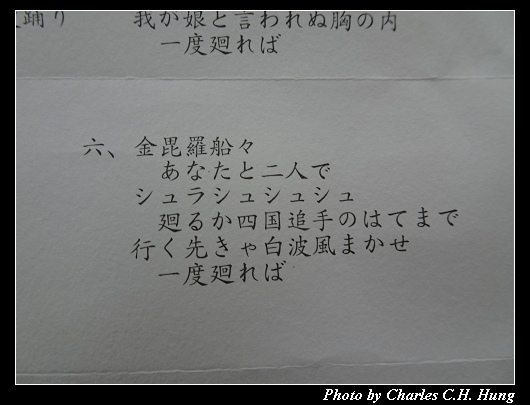 踊り　我が娘と言われぬ胸の内
一度廻れば
六、金毘羅船々
あなたと二人で
シュラシュシュシュ
廻るか四国追手のはてまで
行く先きゃ白波風まかせ
一度廻れば
Photo by Charles C.H. Hung